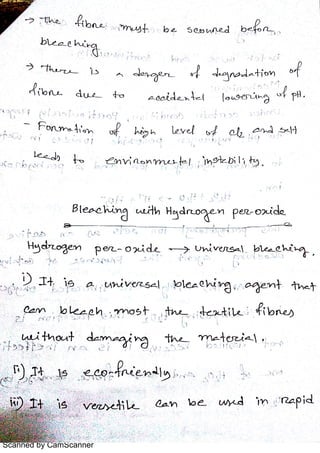 → The fibre must be scoured before
bleaching
→ There is a danger of degradation of
fibre due to accidental lowering of pH.
- Formation of high level of cl2 and salt
leads to environmental instability.
Bleaching with Hydrogen per-oxide
Hydrogen per-oxide → universal bleaching.
i) It is a universal bleaching agent that
can bleach most the textile fibres
without damaging the material.
ii) It is eco-friendly
iii) It is versetile can be used in rapid
Scanned by CamScanner